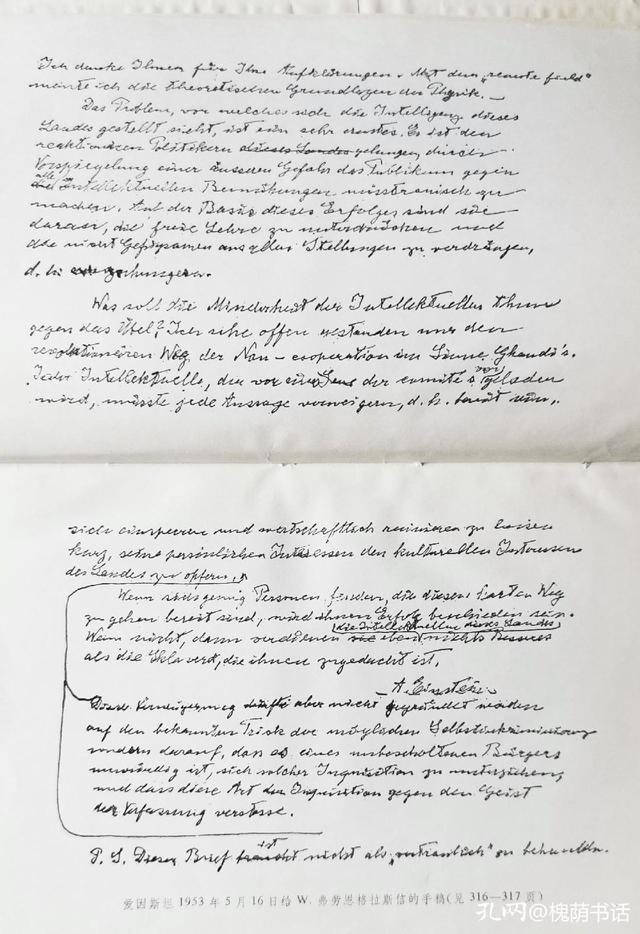 Ich danke Ihnen für Ihre Aufklärungen. Mit dem „remote field"
meinte ich die theoretischen Grundlagen der Physik. —
Das Problem, vor welches sich die Intelligenz dieses
Landes gestellt sieht, ist ein sehr ernstes. Es ist den
reaktionären Politikern dieses Landes gelungen, durch
Vorspiegelung einer äusseren Gefahr das Publikum gegen
alle intellektuellen Bemühungen misstrauisch zu
machen. Auf der Basis dieses Erfolges sind sie
daran, die freie Lehre zu unterdrücken und
die nicht Gefügsamen aus allen Stellungen zu verdrängen,
d. h. auszuhungern.
Was soll die Minderheit der Intellektuellen thun
gegen das Übel? Ich sehe offen gestanden nur den
revolutionären Weg der Non-cooperation im Sinne Ghandi's.
Jeder Intellektuelle, der vor eines der comité's vorgeladen
wird, müsste jede Aussage verweigern, d. h. bereit sein,
sich einsperren und wirtschaftlich ruinieren zu lassen
kurz, seine persönlichen Interessen den kulturellen Interessen
des Landes zu opfern.
Wenn sich genug Personen finden, die diesen harten Weg
zu gehen bereit sind, wird ihnen Erfolg beschieden sein.
Wenn nicht, dann verdienen die Intellektuellen dieses Landes eben nichts Besseres
als die Sklaverei, die ihnen zugedacht ist.
A. Einstein.
Diese Verweigerung dürfte aber nicht gegründet werden
auf den bekannten Trick der möglichen Selbstinkriminierung
sondern darauf, dass es eines unbescholtenen Bürgers
unwürdig ist, sich solcher Inquisition zu unterziehen,
und dass diese Art der Inquisition gegen den Geist
der Verfassung verstosse.
P. S. Dieser Brief ist nicht als „vertraulich" zu behandeln.
爱因斯坦 1953 年 5 月 16 日给 W. 弗劳恩格拉斯信的手稿(见 316—317 页)
孔网@槐荫书话